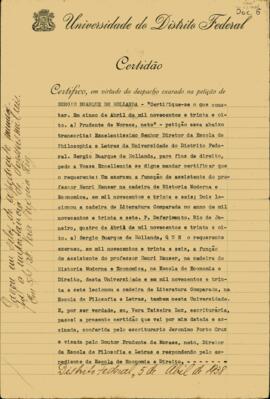 Doc 6
Universidade do Distrito Federal
Certidão
Certifico, em virtude do despacho exarado na petição de
SERGIO BUARQUE DE HOLLANDA - "Certifique-se o que cons-
tar. Em cinco de Abril de mil novecentos e trinta e oi-
to. a) Prudente de Moraes, neto" - petição essa abaixo
transcrita: Excelentissimo Senhor Director da Escola de
Philosophia e Letras da Universidade do Distrito Fede-
ral. Sergio Buarque de Hollanda, para fins de direito,
pede a Vossa Excellencia se digne mandar certificar que
o requerente: Em exerceu a função de assistente do
professor Henri Hauser na cadeira de Historia Moderna e
Economica, em mil novecentos e trinta e seis; Dois leccio-
nou a cadeira de Literatura Comparada no anno de mil
novecentos e trinta e sete. P. Deferimento. Rio de Ja-
neiro, quatro de Abril de mil novecentos e trinta e oi-
to. a) Sergio Buarque de Hollanda, Q U E o requerente exerceu,
em mil novecentos e trinta e seis, a função
de assistente do professor Henri Hauser, na cadeira
de Historia Moderna e Economica, na Escola de Economia e
Direito, desta Universidade e em mil novecentos e trin-
ta e sete leccionou a cadeira de Literatura Comparada, na
Escola de Filosofia e Letras, tambem nesta Universidade.
E, por ser verdade, eu, Vera Teixeira Luz, escripturaria,
passei a presente certidão que vai por mim datada e as-
sinada, conferida pelo escripturario Jeronimo Porto Cruz
e visada pelo Doutor Prudente de Moraes, neto, Director
da Escola de Filosofia e Letras e respondendo pelo ex-
pediente da Escola de Economia e Direito.
Districto Federal, 5 de Abril de 1938